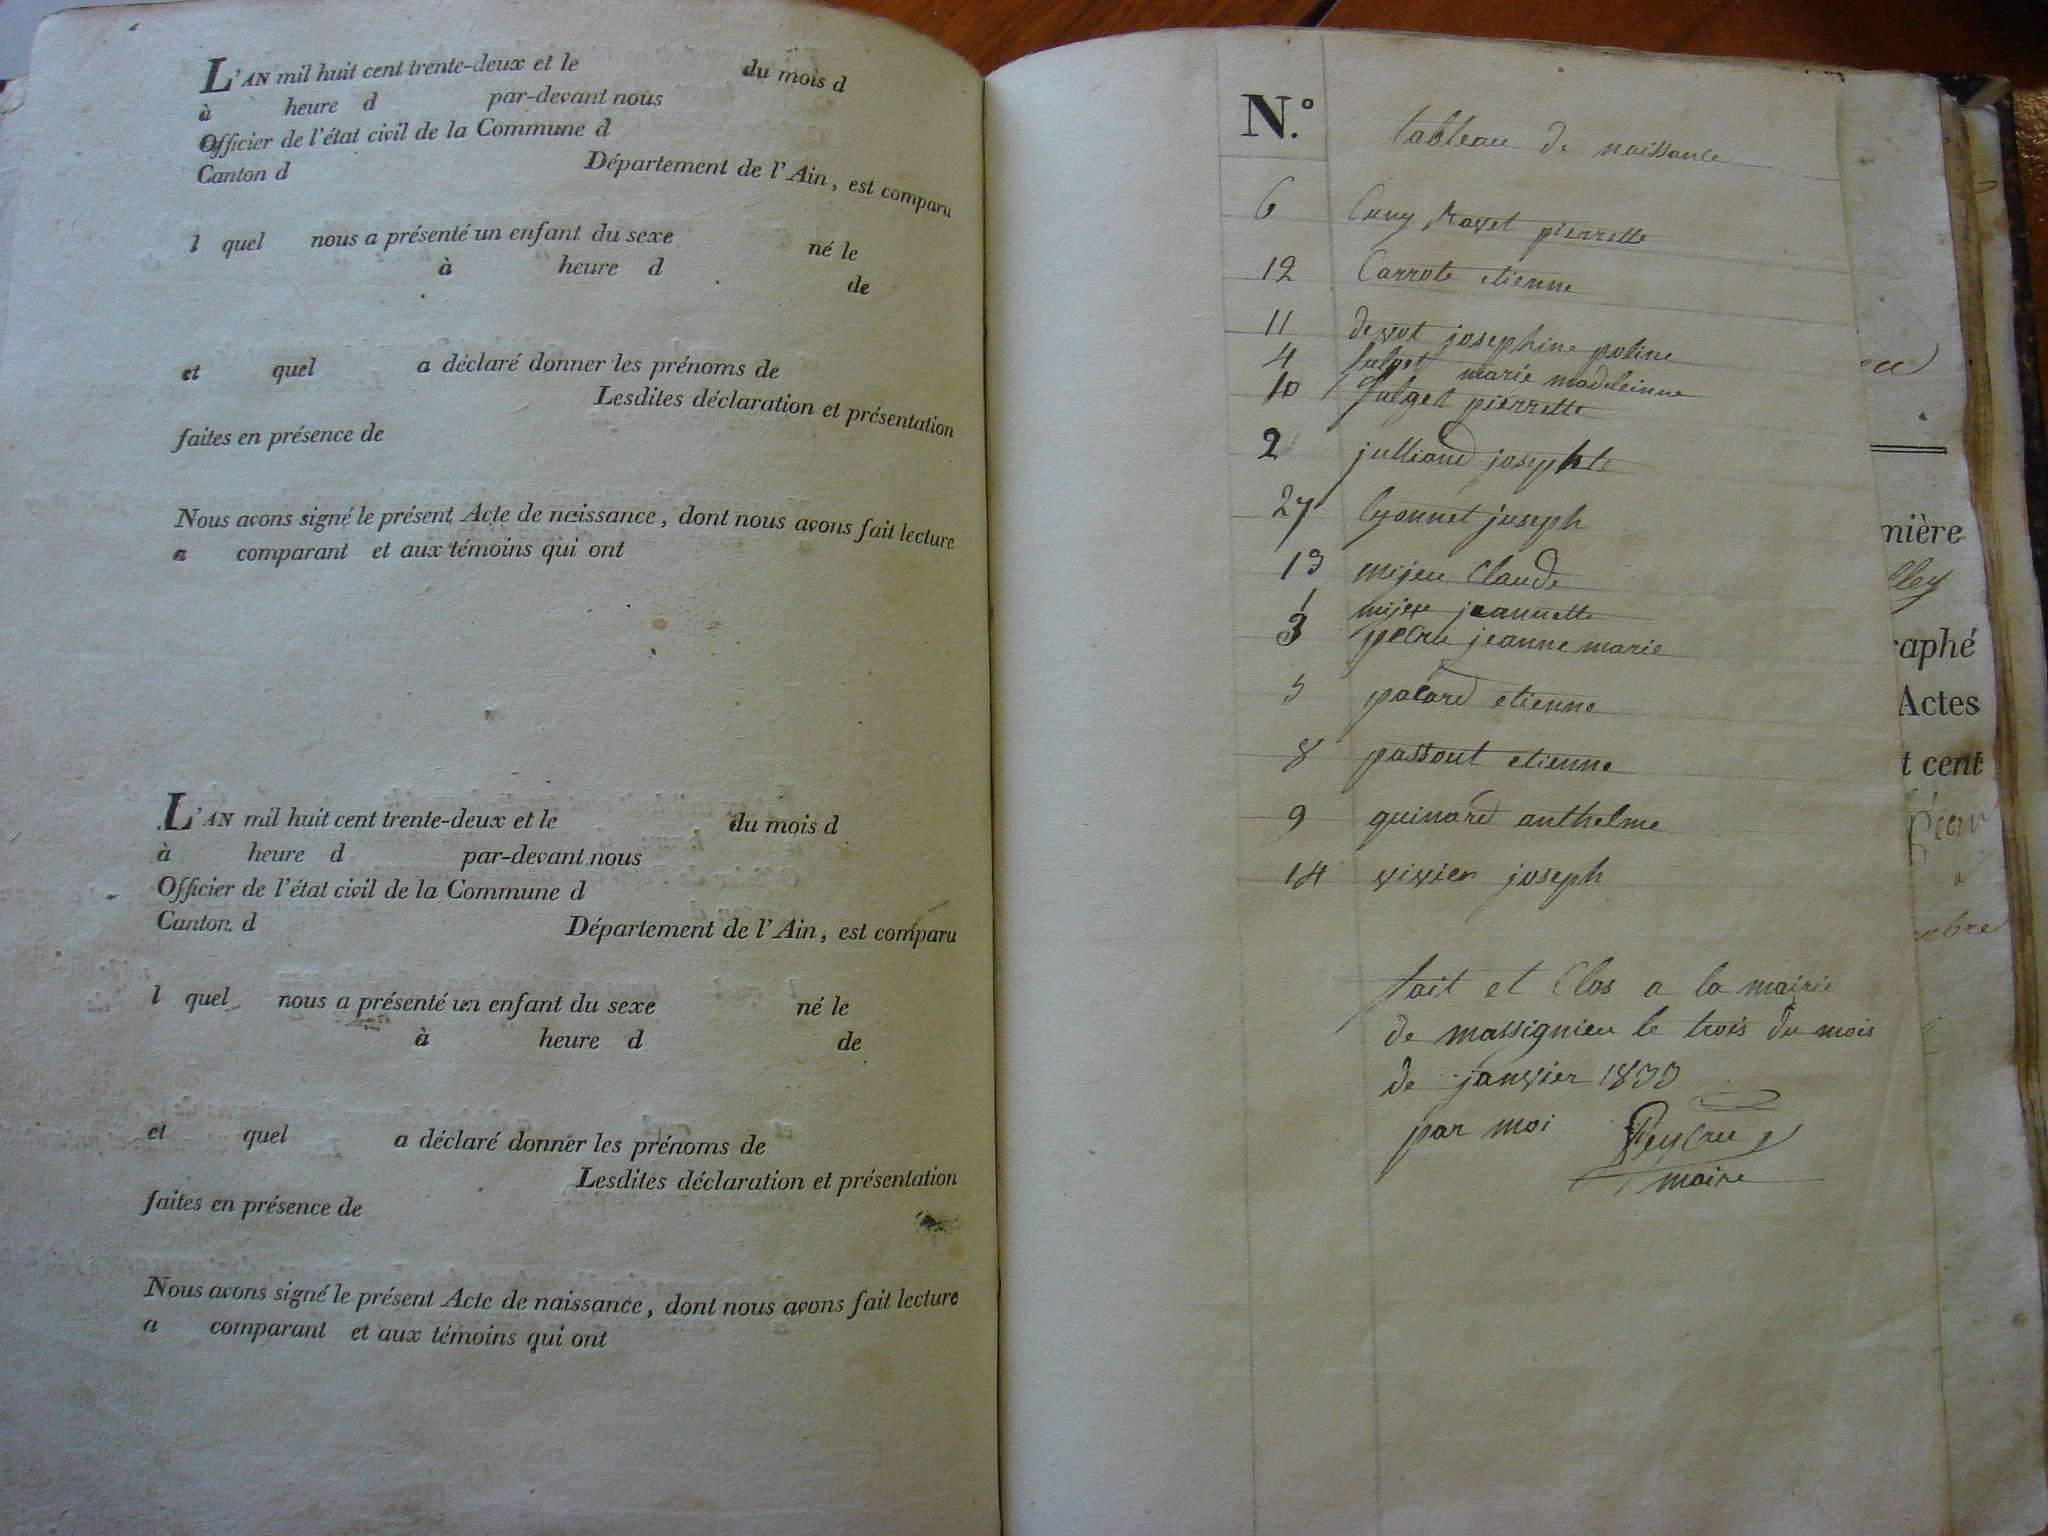 L'AN mil huit cent trente-deux et le du mois d
à heure d par-devant nous
Officier de l'état civil de la Commune d
Canton d Département de l'Ain, est comparu
l quel nous a présenté un enfant du sexe né le
à heure d de
et quel a déclaré donner les prénoms de
Lesdites déclaration et présentation
faites en présence de
Nous avons signé le présent Acte de naissance, dont nous avons fait lecture
a comparant et aux témoins qui ont
L'AN mil huit cent trente-deux et le du mois d
à heure d par-devant nous
Officier de l'état civil de la Commune d
Canton d Département de l'Ain, est comparu
l quel nous a présenté un enfant du sexe né le
à heure d de
et quel a déclaré donner les prénoms de
Lesdites déclaration et présentation
faites en présence de
Nous avons signé le présent Acte de naissance, dont nous avons fait lecture
a comparant et aux témoins qui ont
N.° tableau de naissance
6 pierrette
12 Carrote etienne
11 devot josephine poline
4 falget marie madeleinne
10 falget pierrette
2 julliand josephte
27 lyonnet joseph
13 mijeu Claude
1 jeannette
3 peLru jeanne marie
5 etienne
8 passout etienne
9 guinard anthelme
14 vivier joseph
fait et Clos a la mairie
de massignieu le trois du mois
de janvier 1833
par moi
maire
mière
lley
raphé
Actes
t cent
mbre